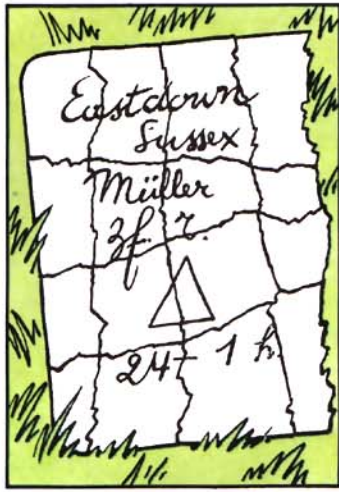 Eastdown
Sussex
Müller
3 f. r.
24 - 1 h.